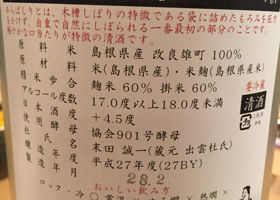 あらばしりとは、木槽しぼりの特徴である袋に詰めたもろみを圧力をかけず、自重で自然にしぼられる一番最初の部分のことです。
な口当たりが特徴の清酒です。
原料米 島根県産 改良雄町 100%
原材料 米(島根県産)・米麹(島根県産米)
精米歩合 麹米 60% 掛米 60%
アルコール度数 17.0度以上18.0度未満
日本酒度 +4.5度
使用酵母 協会901号酵母
杜氏 末田 誠一(蔵元 出雲杜氏)
醸造年度 平成27年度(27BY)
製造年月 28.2.
要冷蔵
清酒
おいしい飲み方
ロック・冷 常温 熱燗